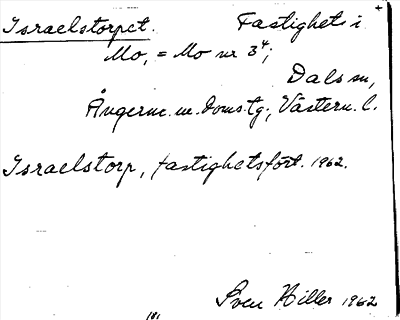 Israelstorpet. Fastighet i
Mo, = Mo nr 3⁴;
Dals sn,
Ångerm. m. doms.tg., Västern. l.
Israelstorp, fastighetsfört. 1962.
Sven Hiller 1962